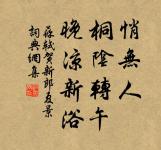 悄無人
桐陰轉午
晚涼新浴
蘇軾賀新郎夏景
詞典網集